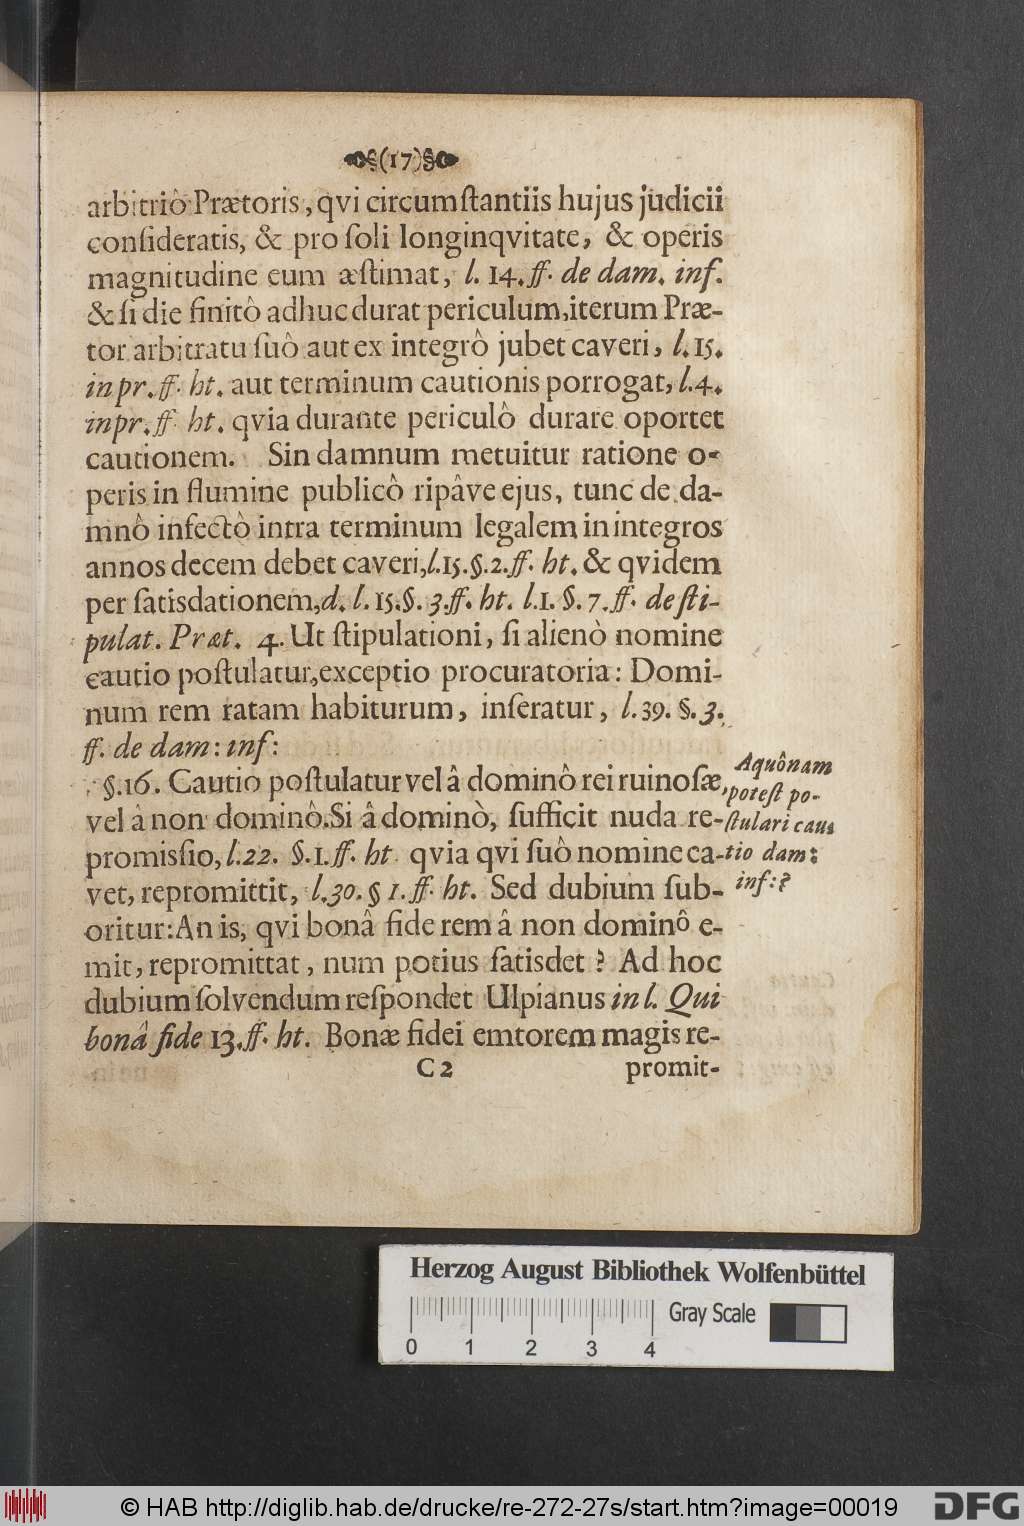 (17)
arbitriô Prætoris, qvi circumſtantiis hujus judicii
conſideratis, & pro ſoli longinqvitate, & operis
magnitudine eum æſtimat, l. 14. ff. de dam. inf.
& ſi die finitô adhuc durat periculum, iterum Præ-
tor arbitratu ſuô aut ex integrô jubet caveri, l. 15.
in pr. ff. ht. aut terminum cautionis porrogat, l. 4.
in pr. ff. ht. qvia durante periculô durare oportet
cautionem. Sin damnum metuitur ratione o-
peris in flumine publicô ripâve ejus, tunc de da-
mnô infectô intra terminum legalem in integros
annos decem debet caveri, l. 15. §. 2. ff. ht. & qvidem
per ſatisdationem, d. l. 15. §. 3. ff. ht. l. 1. §. 7. ff. de ſti-
pulat. Præt. 4. Ut ſtipulationi, ſi alienò nomine
cautio poſtulatur, exceptio procuratoria: Domi-
num rem ratam habiturum, inſeratur, l. 39. §. 3.
ff. de dam: inf:
§. 16. Cautio poſtulatur vel â dominô rei ruinoſæ,
vel à non dominô. Si â dominò, ſufficit nuda re-
promisſio, l. 22. §. 1. ff. ht. qvia qvi ſuô nomine ca-
vet, repromittit, l. 30. § 1. ff. ht. Sed dubium ſub-
oritur: An is, qvi bonâ fide rem â non dominô e-
mit, repromittat, num potius ſatisdet? Ad hoc
dubium ſolvendum reſpondet Ulpianus in l. Qui
bonâ fide 13. ff. ht. Bonæ fidei emtorem magis re-
C 2 promit-
Aquônam
poteſt po-
ſtulari cau-
tio dam:
inf:?
Herzog August Bibliothek Wolfenbüttel
Gray Scale
0 1 2 3 4
© HAB http://diglib.hab.de/drucke/re-272-27s/start.htm?image=00019
DFG